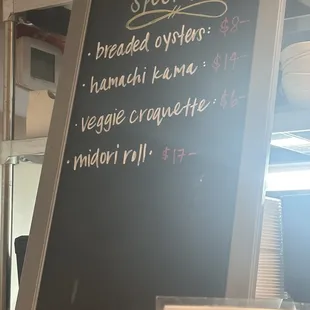 · breaded oysters: $8-
· hamachi kama: $14-
· veggie croquette· $6-
· midori roll· $17-